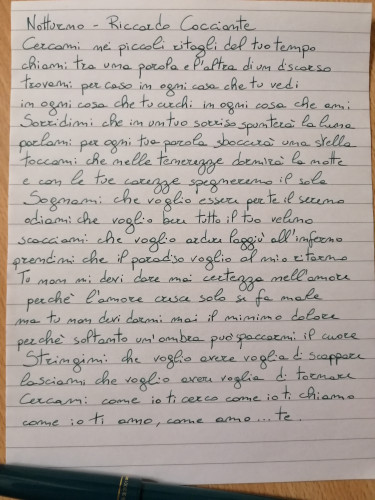 Notturno - Riccardo Cocciante
Cercami nei piccoli ritagli del tuo tempo
chiami tra una parola e l'altra di un discorso
trovami per caso in ogni cosa che tu vedi
in ogni cosa che tu cerchi in ogni cosa che ami
Sorridimi che in un tuo sorriso spunterà la luna
parlami per ogni tua parola sboccerà una stella
toccami che nelle tenerezze dormirà la notte
e con le tue carezze spegneremo il sole
Sognami che voglio essere per te il sereno
odiami che voglio bere tutto il tuo veleno
scacciami che voglio ardere laggiù all'inferno
prendimi che il paradiso voglio al mio ritorno
Tu non mi devi dare mai certezza nell'amore
perchè l'amore cresce solo se fa male
ma tu non devi darmi mai il minimo dolore
perchè soltanto un'ombra può spaccarmi il cuore
Stringimi che voglio avere voglia di scappare
lasciami che voglio avere voglia di tornare
Cercami come io ti cerco come io ti chiamo
come io ti amo, come amo... te.